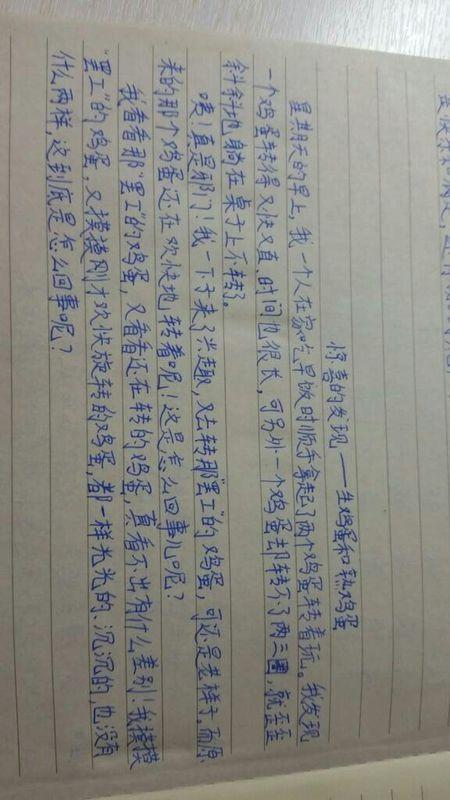 惊喜的发现——生鸡蛋和熟鸡蛋
星期天的早上,我一个人在家吃早饭时顺手拿起了两个鸡蛋转着玩。我发现
一个鸡蛋转得又快又直,时间也很长,可另外一个鸡蛋却转不了两三圈,就歪歪
斜斜地躺在桌子上不转了。
咦!真是邪门!我一下子来了兴趣,又去转那"罢工"的鸡蛋,可还是老样子,而原
来的那个鸡蛋还在欢快地转着呢!这是怎么回事儿呢?
我看看那"罢工"的鸡蛋,又看看还在转的鸡蛋,真看不出有什么差别!我摸摸
"罢工"的鸡蛋,又摸摸刚才欢快旋转的鸡蛋,都一样光光的、沉沉的,也没有
什么两样,这到底是怎么回事呢?